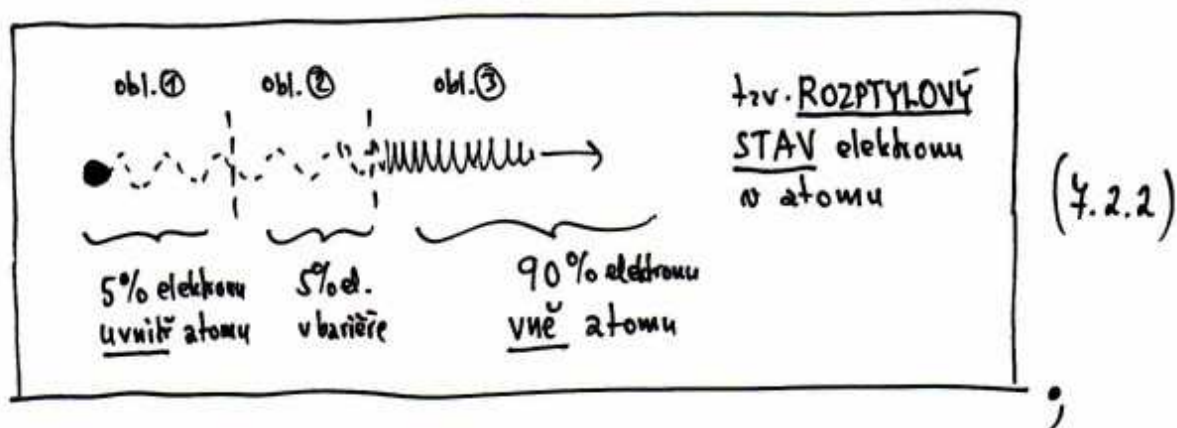 obl. ① obl. ② obl. ③
tzv. ROZPTYLOVÝ
STAV elektronu
v atomu
(7.2.2)
5% elektronu
uvnitř atomu
5% el.
v bariéře
90% elektronu
vně atomu
;